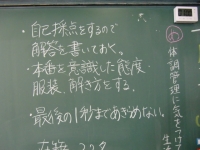 ・自己採点をするので
解答を書いておく。
・本番を意識した態度・
服装、解き方をする。
・最後の1秒まであきらめない。
在籍 33名
め
体調管理に気をつけて
生